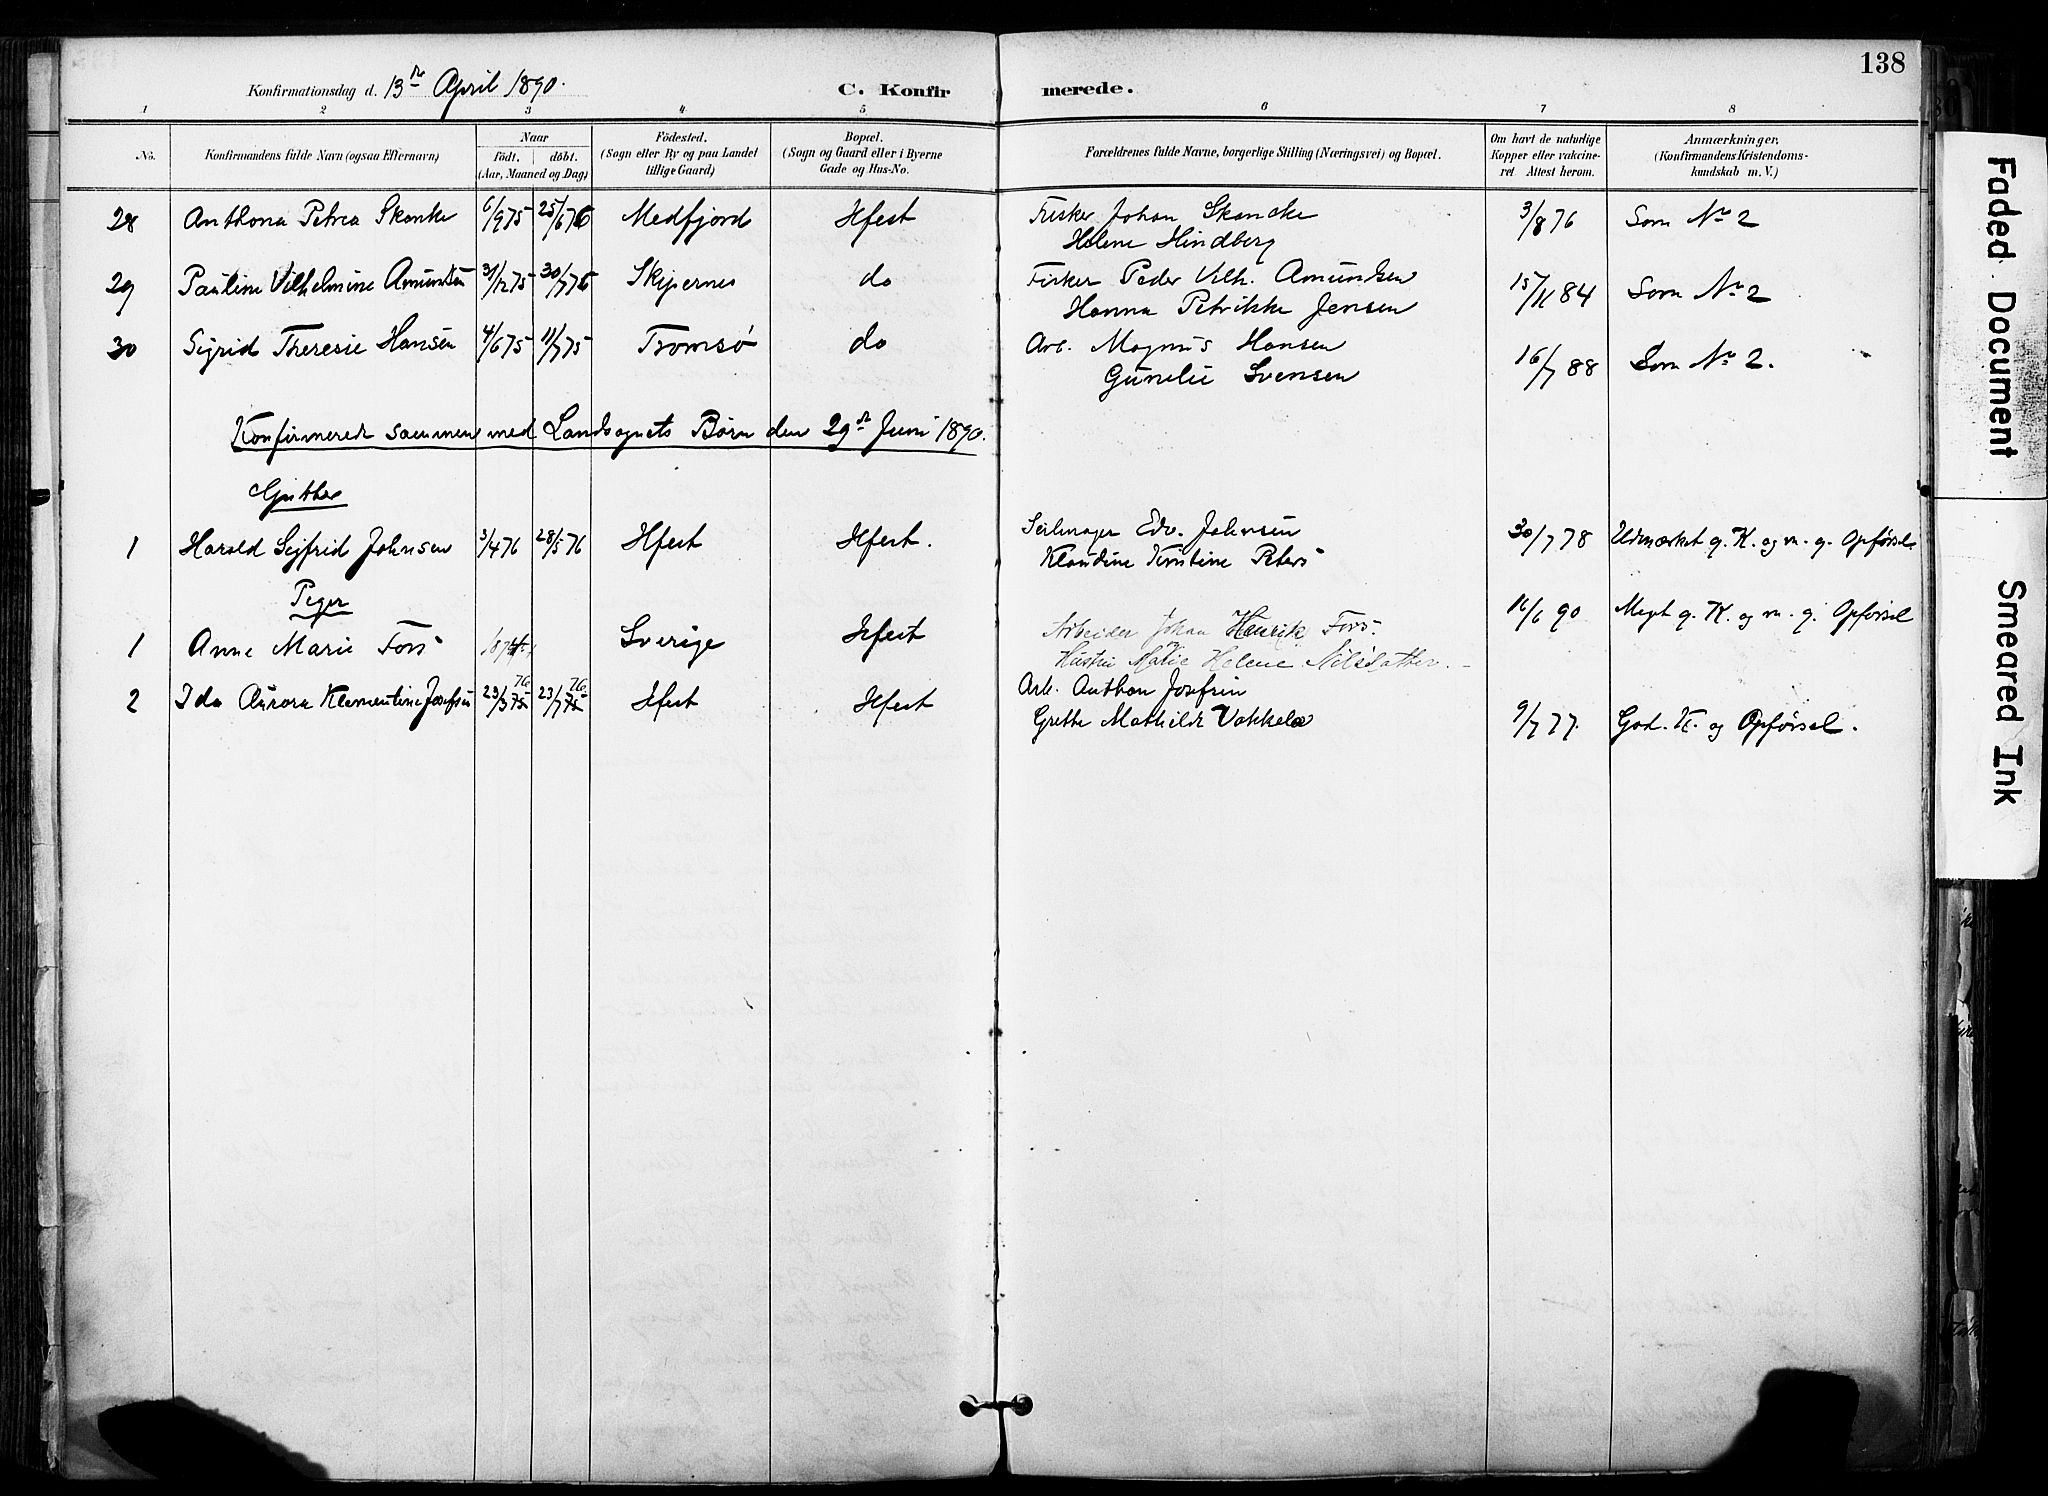 138
Konfirmationsdag d. 13de April 1890. C. Konfirmerede.
1 2 3 4 5 6 7 8
No. Konfirmandens fulde Navn (ogsaa Efternavn) Naar födt. döbt. (Aar, Maaned og Dag) Födested. (Sogn eller By og paa Landet tillige Gaard) Bopæl. (Sogn og Gaard eller i Byerne Gade og Hus-No. Forældrenes fulde Navne, borgerlige Stilling (Næringsvei) og Bopæl. Om havt de naturlige Kopper eller vakcineret Attest herom. Anmærkninger, (Konfirmandens Kristendomskundskab m. V.)
28 Anthona Petrea Skanke 6/9 75 25/6 76 Medfjord Hfest Fisker Johan Skancke 3/8 76 Som No 2
Helene Hindberg
29 Pauline Vilhelmine Amundsen 31/12 75 30/7 76 Skjernes do Fisker Peder Vilh. Amundsen 15/11 84 Som No 2
Hanna Petrikke Jensen
30 Sigrid Theresie Hansen 4/6 75 11/7 75 Tromsø do Arb. Magnus Hansen 16/7 88 Som No 2.
Gunelie Svensen
Konfirmerede sammen med Landsognets Børn den 29de Juni 1890.
Gutter
1 Harald Sigfrid Johnsen 3/4 76 28/5 76 Hfest Hfest. Seilmager Edv. Johnsen 30/7 78 Udmærket g. K. og m. g. Opførsel.
Klaudine Kristine Peters
Piger
1 Anne Marie Fors 1874 Sverige Hfest Arbeider Johan Henrik Fors. 16/6 90 Meget g. K. og m. g. Opførsel
Hustru Marie Helene Nilsdatter.
2 Ida Aurora Klementine Josefsen 23/3 75 76 23/7 75 76 Hfest Hfest Arb. Anthon Josefsen
Grethe Mathilde Vakkela 9/7 77. God. K. og Opførsel.
Faded Document
Smeared Ink